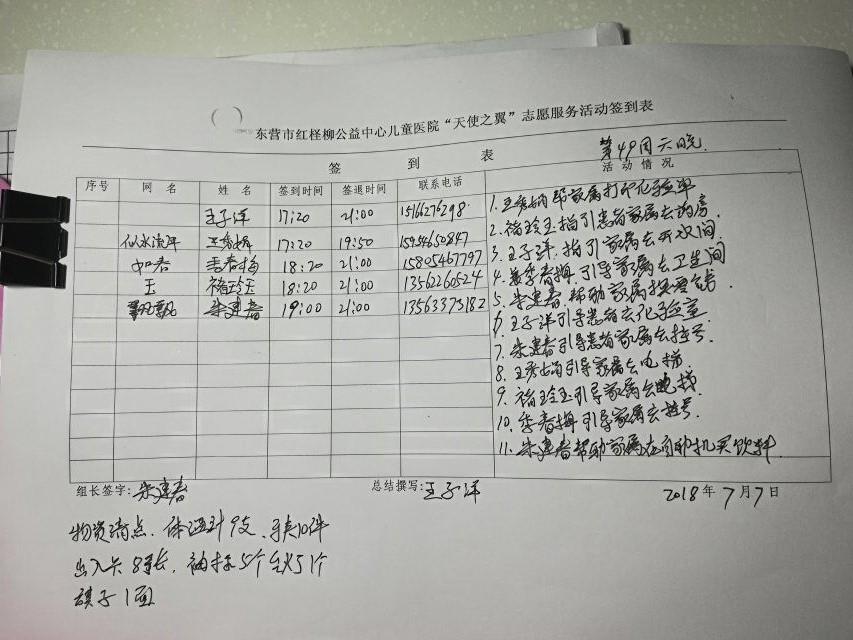 东营市红柽柳公益中心儿童医院“天使之翼”志愿服务活动签到表
第49周六晚.
签 到 表 活动情况
序号 网 名 姓 名 签到时间 签退时间 联系电话
王子洋 17:20 21:00 15166276298
似水流年 17:20 19:50 15954650847
如春 李春梅 18:20 21:00 15805467797
玉 褚玲玉 18:20 21:00 13562260524
飘飘 朱建春 19:00 21:00 13563375182
1. 帮家属打印化验单
2. 褚玲玉指引患者家属去药房
3. 王子洋指引家属去开水间
4. 李春梅引导家属去卫生间
5. 朱建春帮助家属
6. 王子洋引导患者去化验室
7. 朱建春引导患者家属去挂号.
8. 引导家属去电梯
9. 褚玲玉引导家属去电梯
10. 李春梅引导家属去挂号
11. 朱建春帮助家属在自助机买饮料
组长签字: 朱建春 总结撰写: 王子洋 2018年7月7日
物资清点. 体温计9支、10件
出入卡8张. 袖标5个 51个
旗子1面